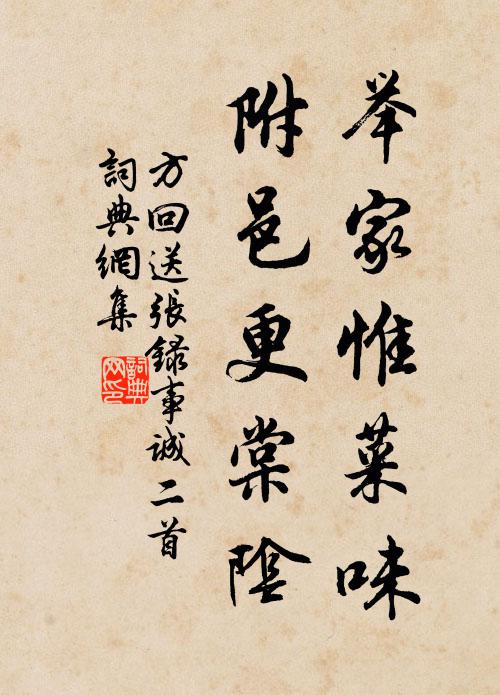 举家惟菜味
附邑更棠陰
方回送張錄事诚二首
詞典網集
詞典网印